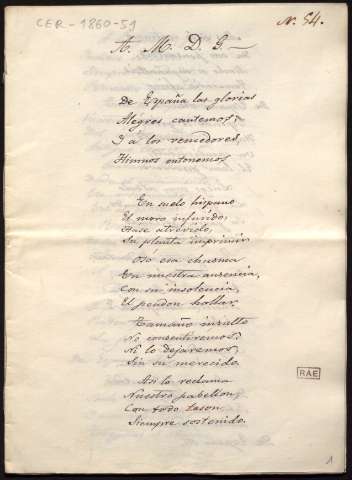 CER-1860-51
N. 54.
A. M. D. G.
De España las glorias
Alegres cantemos;
Y á los vencedores
Himnos entonemos
En suelo hispano
El moro infundo,
Hase atrevido,
Su planta imprimir
Osó esa chusma
En nuestra ausencia,
Con su insolencia,
El pendon hollar.
Tamaño insulto
No consentiremos;
Ni lo dejaremos,
Sin su merecido.
Asi lo reclama
Nuestro pabellon,
Con todo
Siempre sostenido.
RAE
1